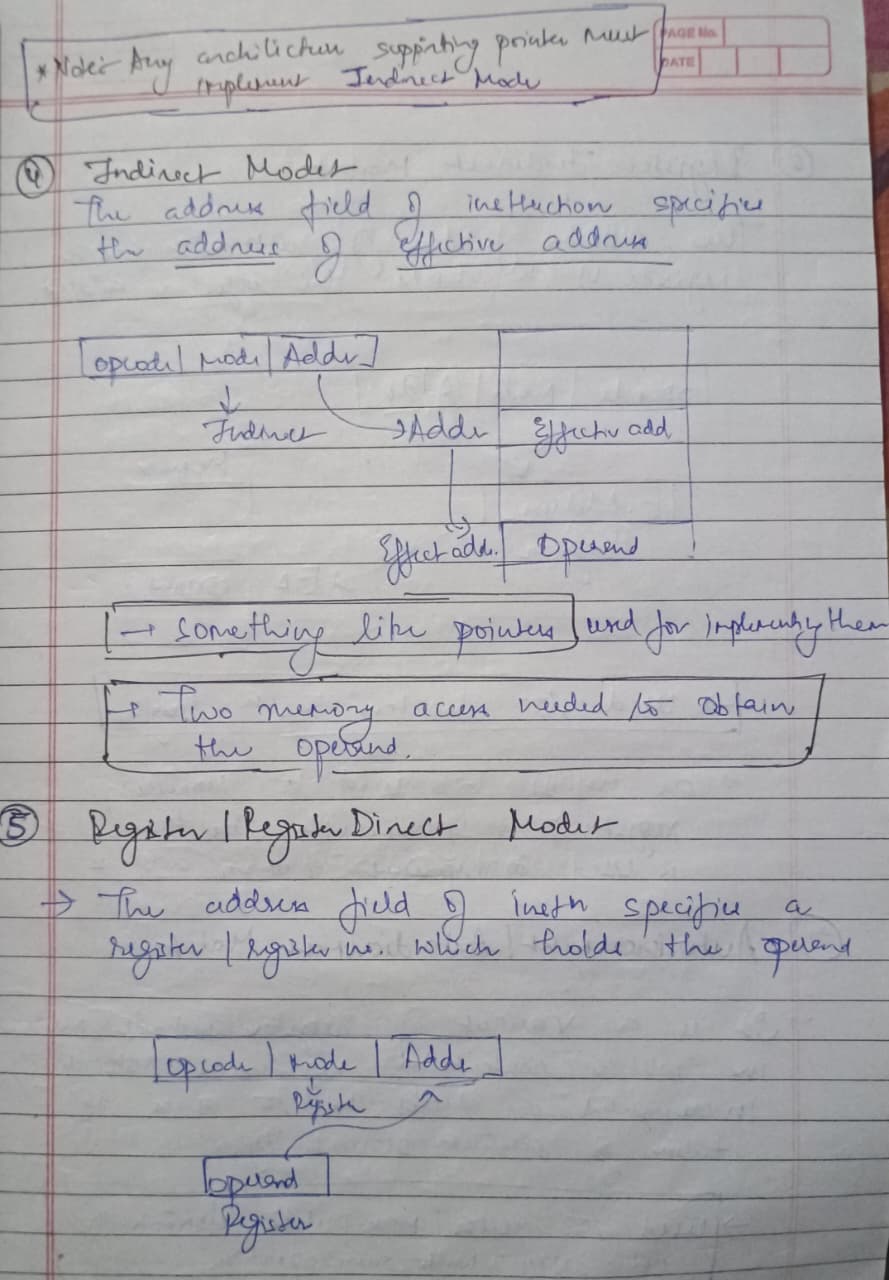 PAGE No.
DATE
*Note:- Any architecture supporting pointer must
implement Indirect Mode
4 Indirect Mode:-
The address field of instruction specifies
the address of Effective address
opcode | Mode | Addr
Indirect → Addr Effectiv add
Effect add. Operand
→ something like pointers used for implementing them
→ Two memory access needed to obtain
the operand.
5 Register / Register Direct Mode:-
→ The address field of instn specifies a
register / register no. which holds the operand
opcode | mode | Addr
Register
operand
Register